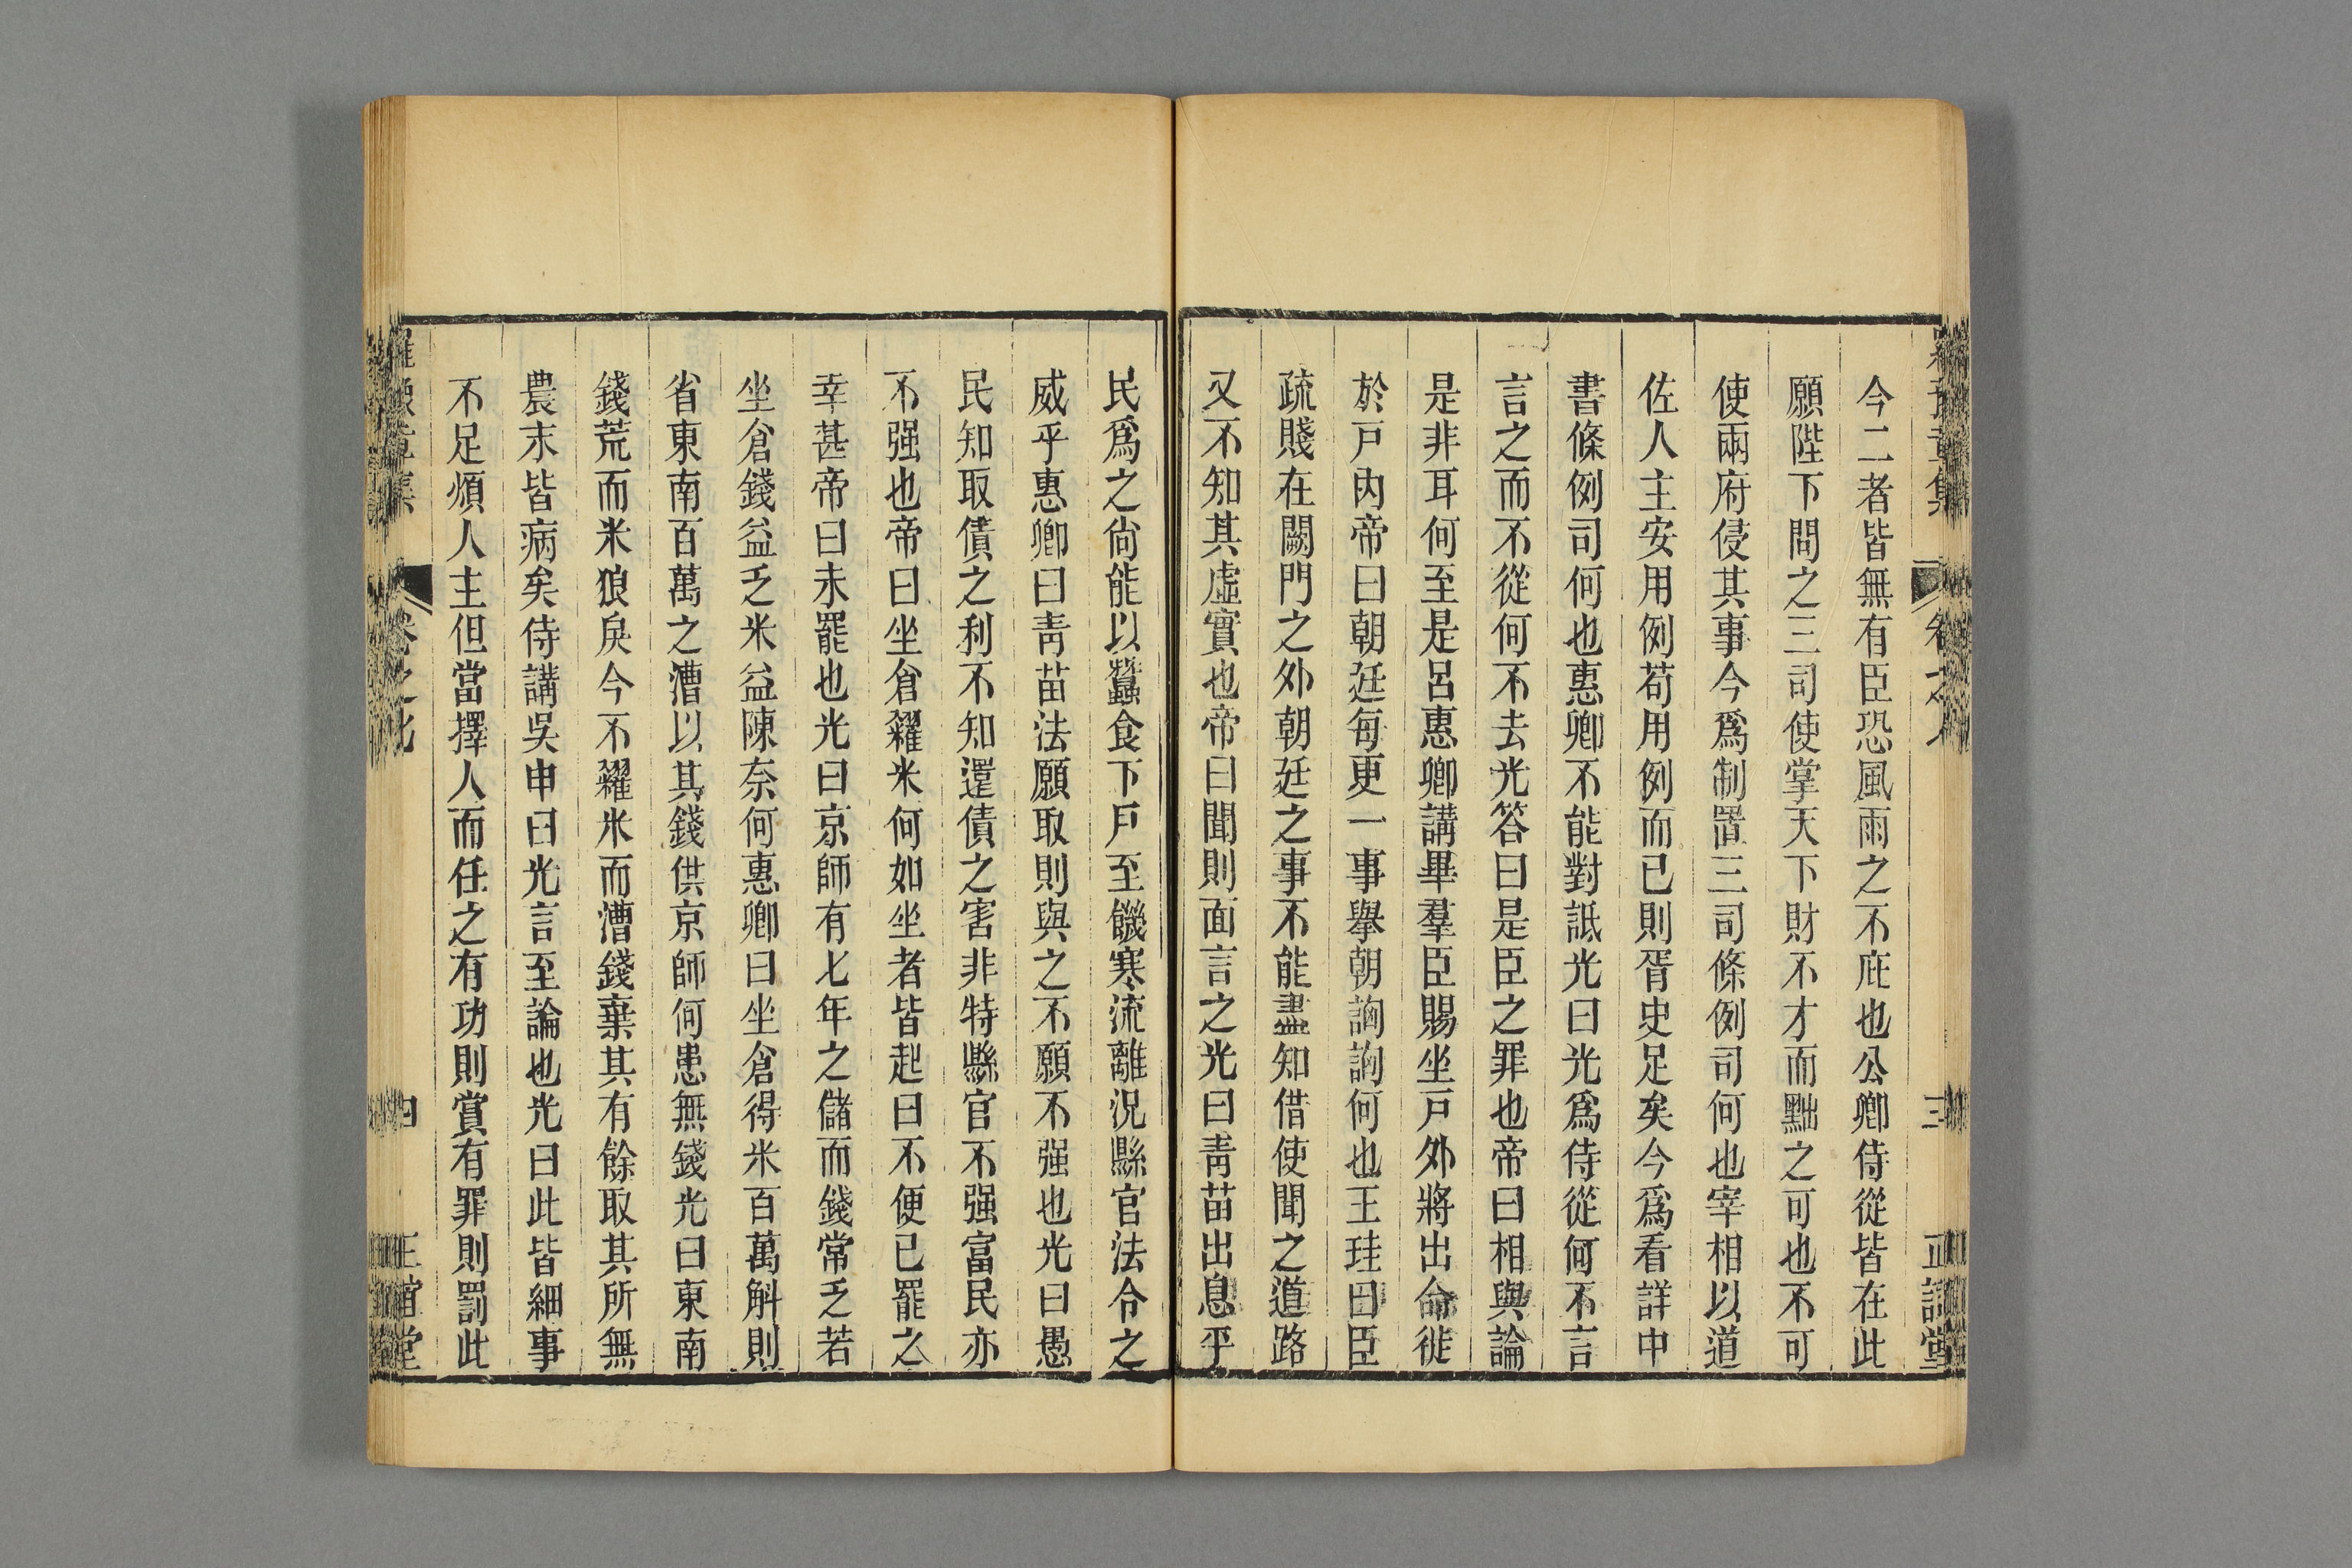 今二者皆無有臣恐風雨之不庇也公卿侍從皆在此
願陛下問之三司使掌天下財不才而黜之可也不可
使兩府侵其事今爲制置三司條例司何也宰相以道
佐人主安用例苟用例而已則胥史足矣今爲看詳中
書條例司何也惠卿不能對詆光曰光爲侍從何不言
言之而不從何不去光答曰是臣之罪也帝曰相與論
是非耳何至是呂惠卿講畢羣臣賜坐戸外將出命徙
於戸內帝曰朝廷每更一事舉朝詾詾何也王珪曰臣
疏賤在闕門之外朝廷之事不能盡知借使聞之道路
又不知其虛實也帝曰聞則面言之光曰靑苗出息乎
民爲之尙能以蠶食下戸至饑寒流離況縣官法令之
威乎惠卿曰靑苗法願取則與之不願不强也光曰愚
民知取債之利不知還債之害非特縣官不强富民亦
不强也帝曰坐倉糴米何如坐者皆起曰不便已罷之
幸甚帝曰未罷也光曰京師有七年之儲而錢常乏若
坐倉錢益乏米益陳奈何惠卿曰坐倉得米百萬斛則
省東南百萬之漕以其錢供京師何患無錢光曰東南
錢荒而米狼戾今不糴米而漕錢棄其有餘取其所無
農末皆病矣侍講吳申曰光言至論也光曰此皆細事
不足煩人主但當擇人而任之有功則賞有罪則罰此
卷之
四